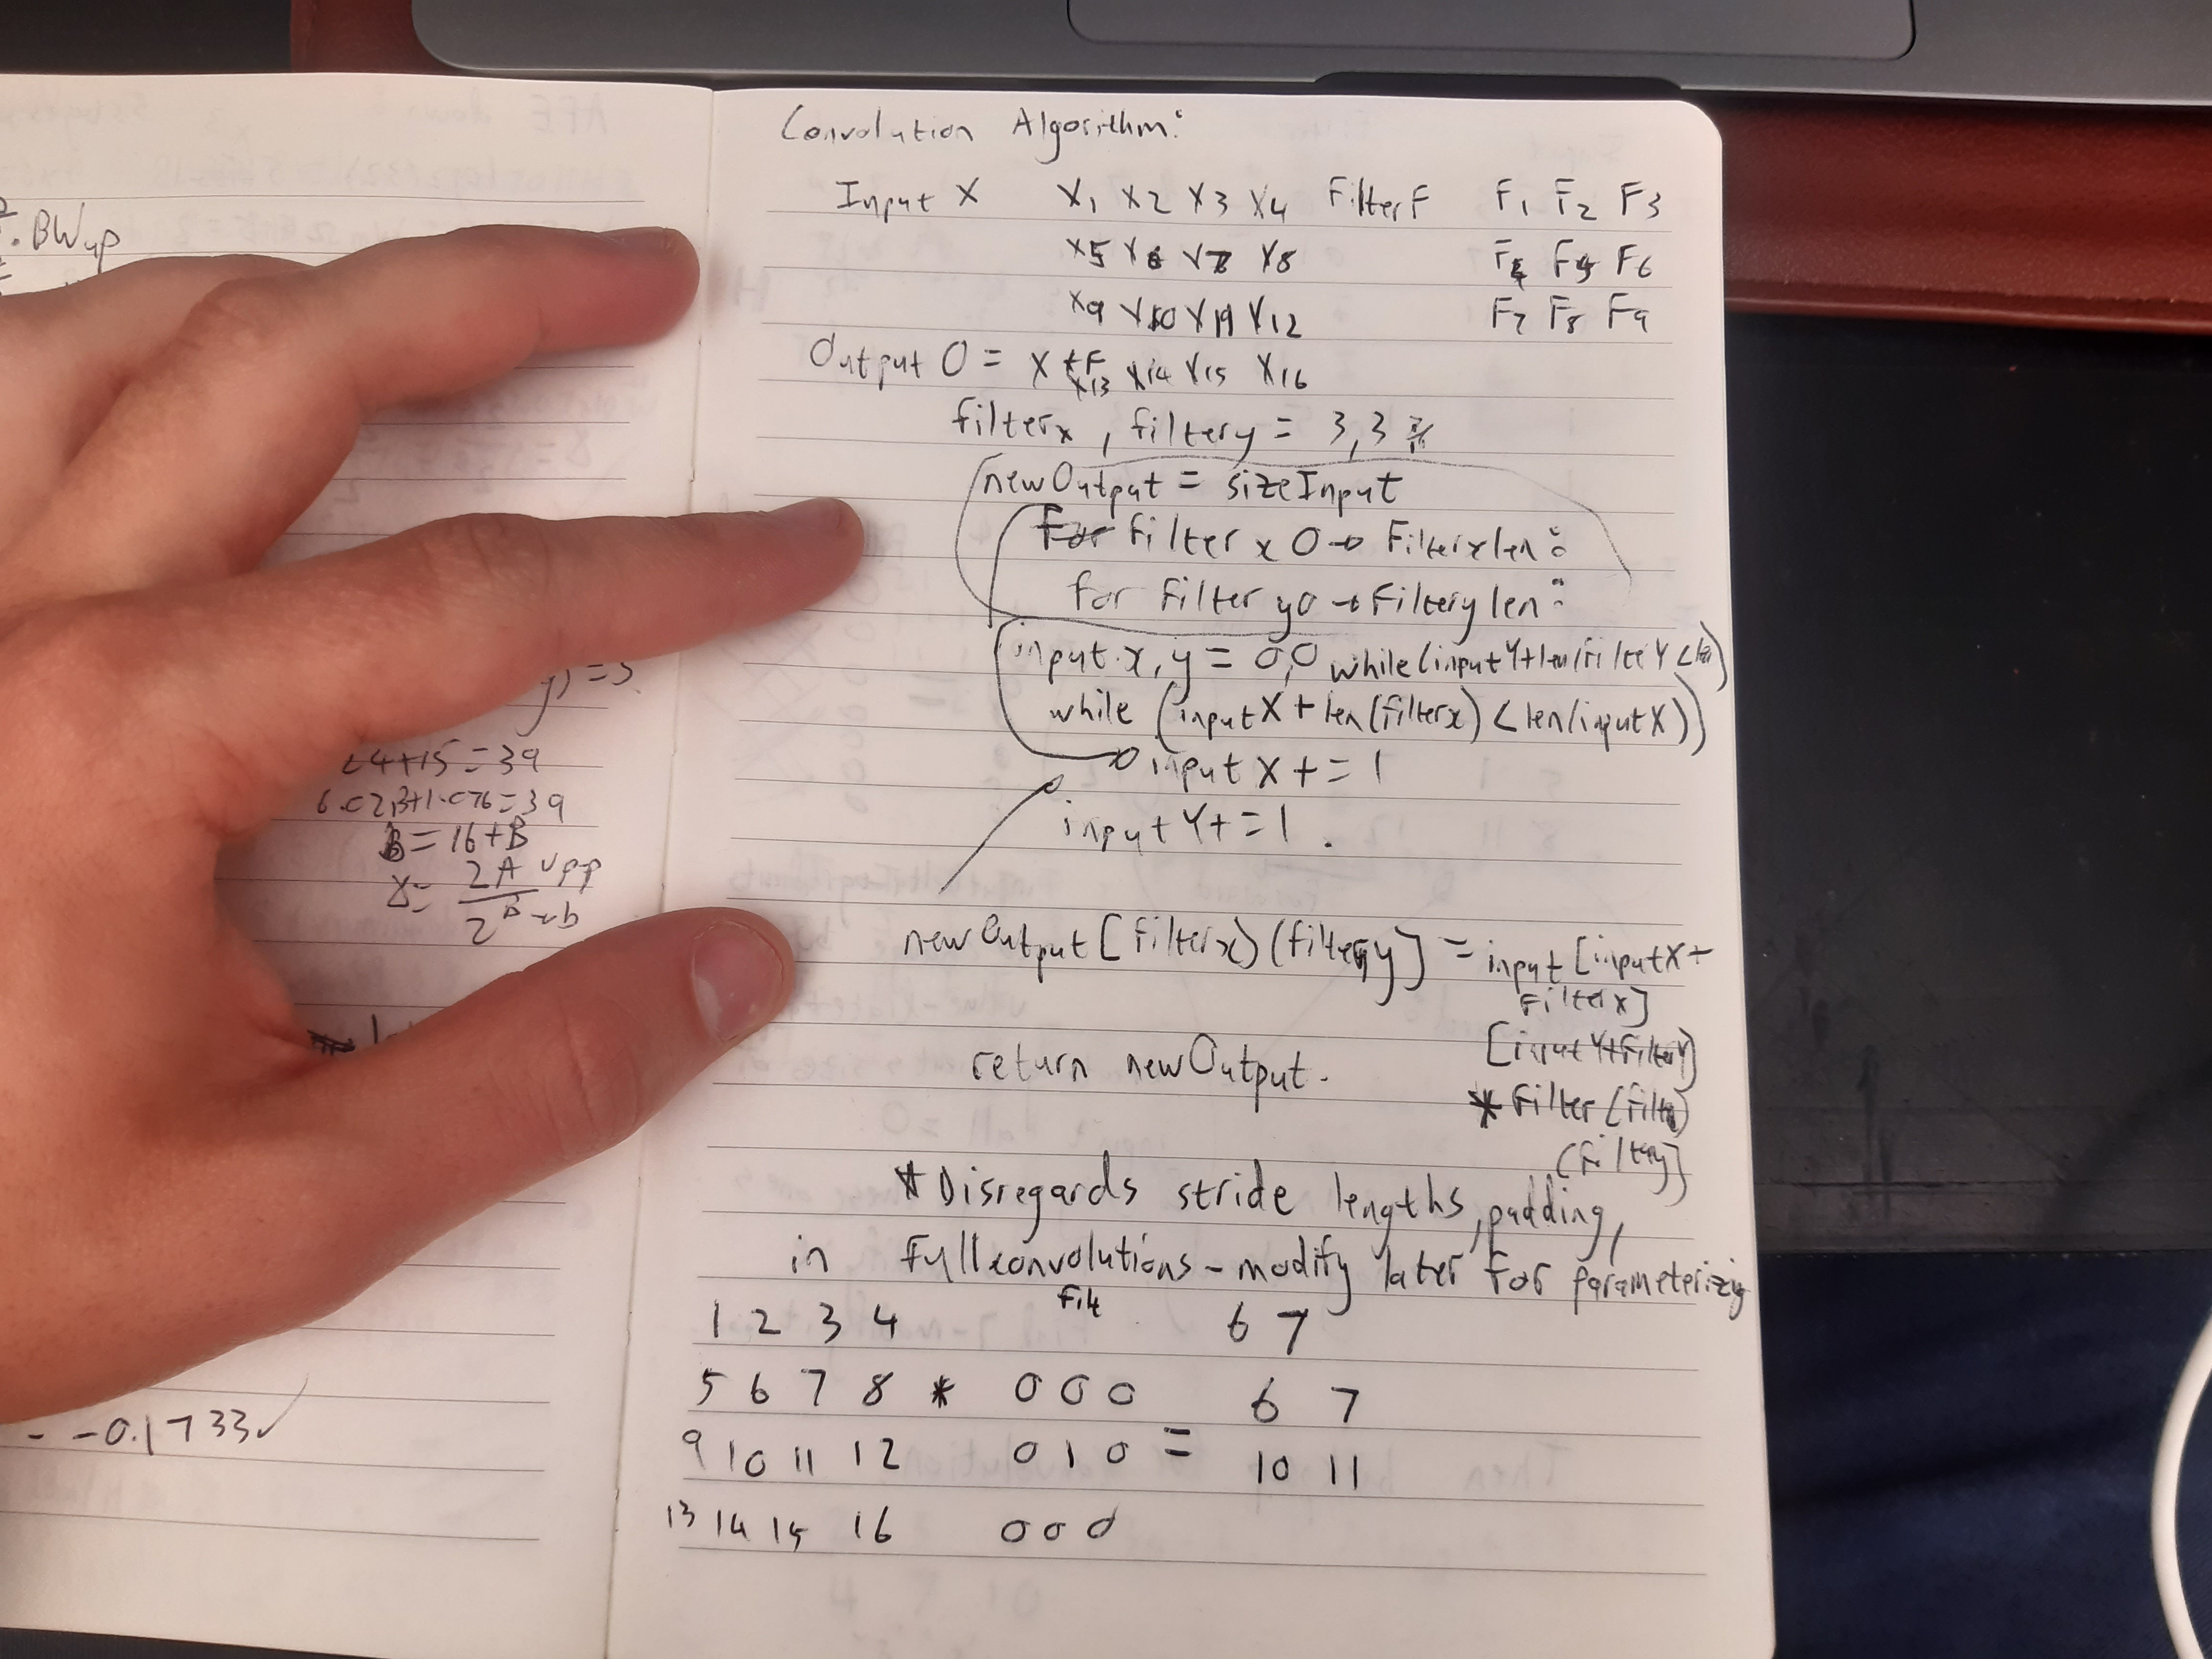 .BWup
24+15=39
6.02B+1.076=39
B=16+B
2A Vpp
2
- -0.1733✓
Convolution Algorithm:
Input X X1 X2 X3 X4 Filter F F1 F2 F3
X5 X6 X7 X8 F4 F5 F6
X9 X10 X11 X12 F7 F8 F9
Output O = X * F
X13 X14 X15 X16
filterx, filtery = 3,3
newOutput = sizeInput
For filter x 0→ Filterxlen:
for filter y0→Filterylen:
input x, y = 0,0 while(inputY+len(filterY<len)
while (inputX + len(filterx) < len(inputX))
inputX += 1
inputY+=1.
newOutput[filterx)(filtery] = input [inputX+
Filterx]
[inputY+FilterY)
return newOutput.
* Filter(filter)
(filtery]
*Disregards stride lengths, padding,
in Fullconvolutions - modify later for parameterizing
filt
1 2 3 4 6 7
5 6 7 8 * 0 0 0 6 7
9 10 11 12 0 1 0 = 10 11
13 14 15 16 0 0 0